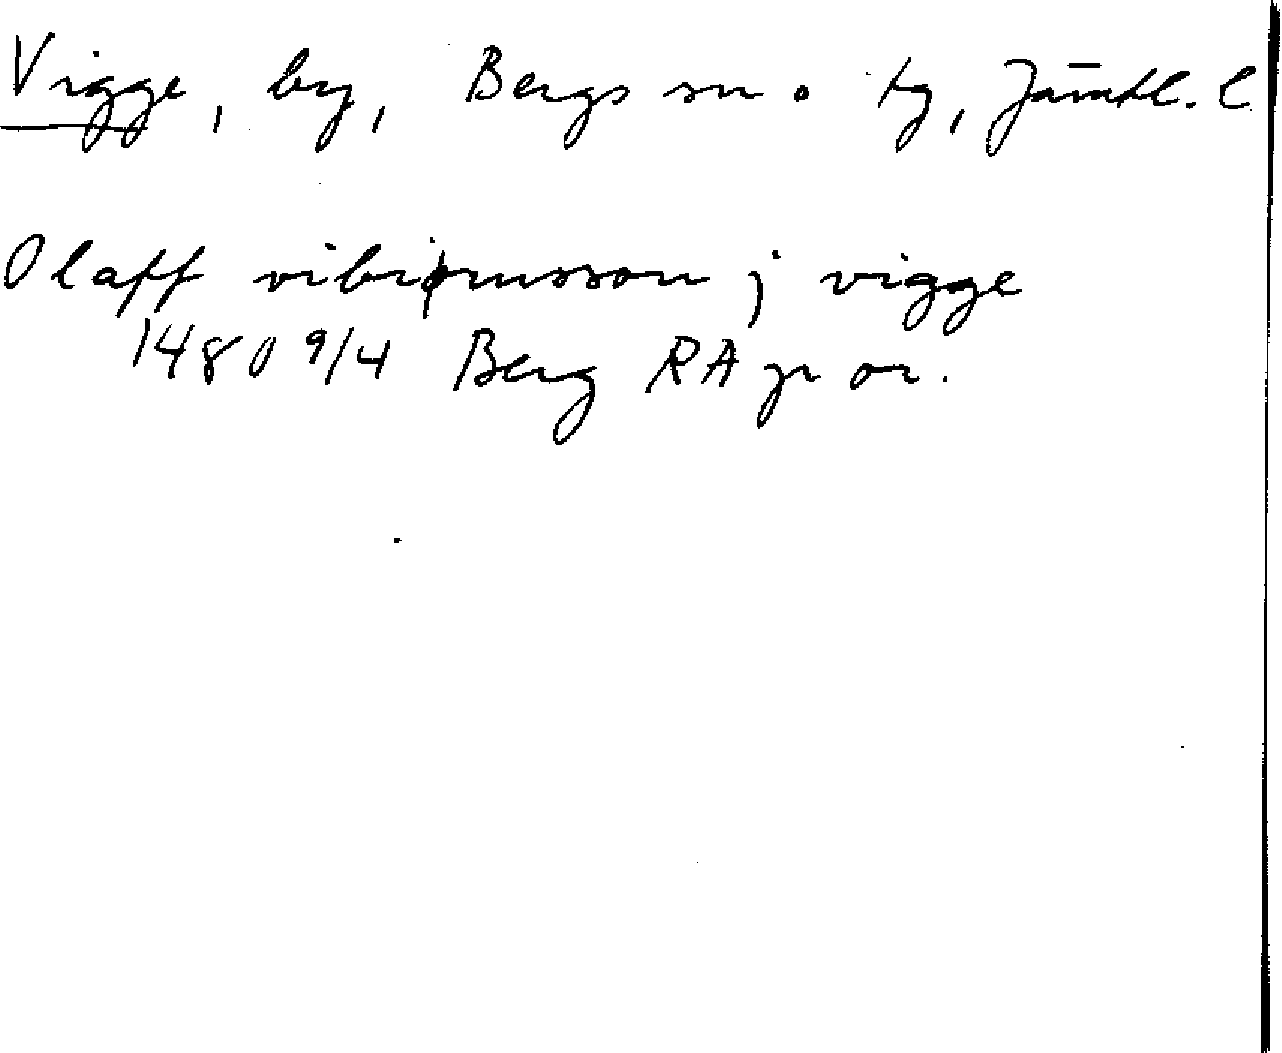 Vigge, by, Bergs sn o tg, Jämtl. l
Olaff vibiørnsson j vigge
1480 9/4 Berg RA p or.